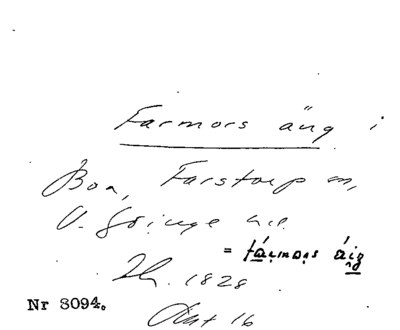 Farmors äng i
Boa, Farstorp sn,
V. Göinge hd.
= fármors áig
1828
Nr 3094.
16